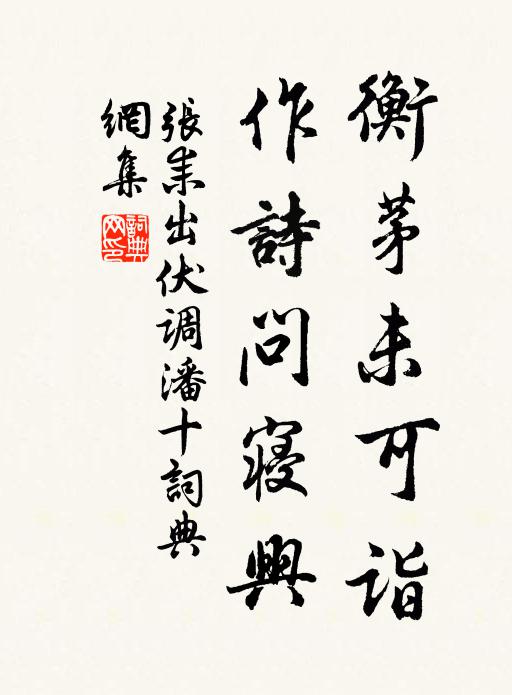 衡茅未可詣
作詩問寢興
張耒出伏調潘十詞典
網集
詞典網印